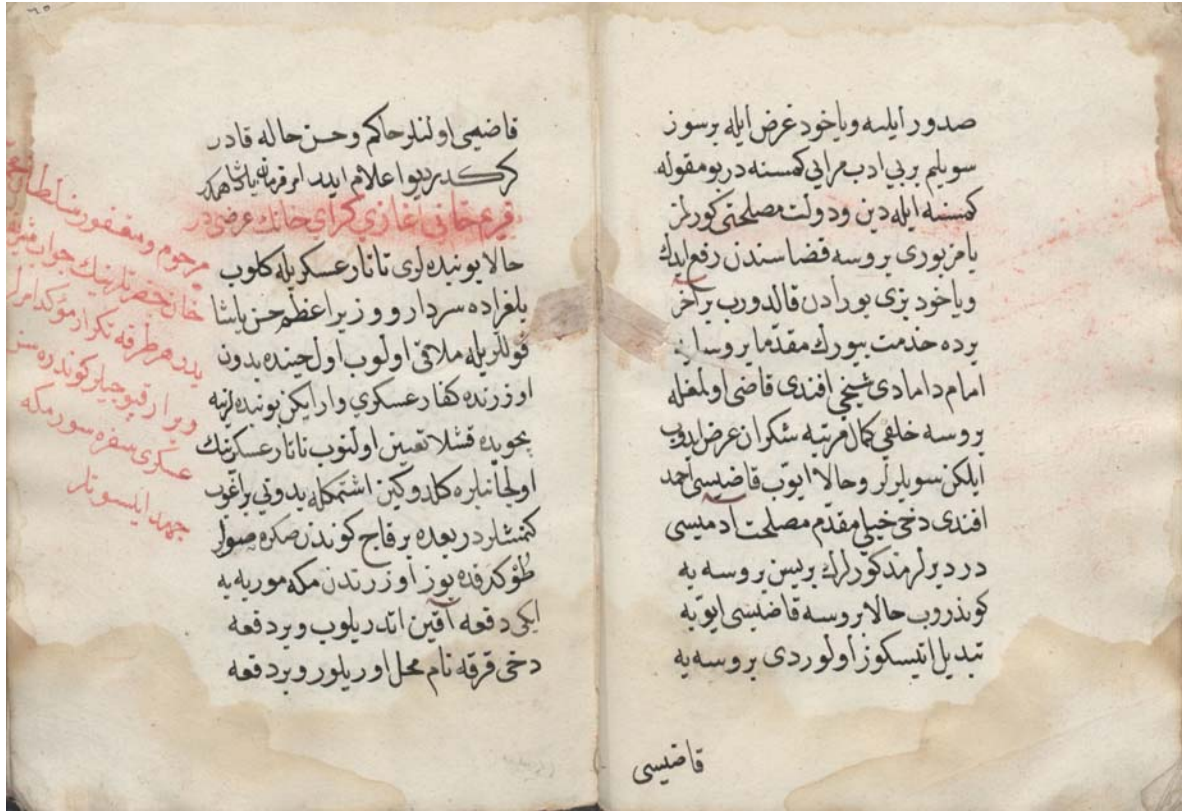 صدور ایلیه ویاخود غرض ایله برسوز
سویلیم بر بی ادب مرایی کمسنه در بو مقوله
کمسنه ایله دین ودولت مصلحتی کورلمز
یا مزبوری بروسه قضاسندن رفع ایدك
ویاخود بزی بورادن قالدورب بر آخر
یرده خدمت بیورك مقدما بروسایه
امام دامادی شیخی افندی قاضی اولمغله
بروسه خلقی کمال مرتبه شکران عرض ایدوب
ایلکن سویلرلر وحالا ایوب قاضیسی احمد
افندی دخی خیلی مقدم مصلحت ادمیسی
در دیرلر مذکورلرك بریسن بروسه یه
کوندروب حالا بروسه قاضیسی ایوبه
تبدیل اتیسکوز اولوردی بروسه یه
قاضیسی
قاضیی اولنلر حاکم وحسن حاله قادر
کرکدر دیو اعلام ایدر امر فرمان پادشاهمکدر
قریم خانی غازی کرای خانك عرضی در
حالا بو بنده لری تاتار عسکریله کلوب
بلغراده سردار و وزیر اعظم حسن پاشا
قوللریله ملاقی اولوب اول حینده بدون
اوزرنده کفار عسکری وار ایکن بو بنده لرینه
بجویده قشلا تعیین اولنوب تاتار عسکرینك
اول جانبلره کلدوکین اشتمکله بدونی براغوب
کتمشلردر بعده بر قاچ کوندن صکره صولر
طوکدقده بوز اوزرندن مکه موریه یه
ایکی دفعه آقین اتدریلوب وبر دفعه
دخی قرقه نام محل اوریلور وبر دفعه
مرحوم ومغفور سلطان
خان حضرتلرینك جوان
یدر هر طرفه تکرار مؤکد امرلر
ویرارقپوجیلر کوندره سن
عسکری سفره سورمکه
جهد ایلسونلر